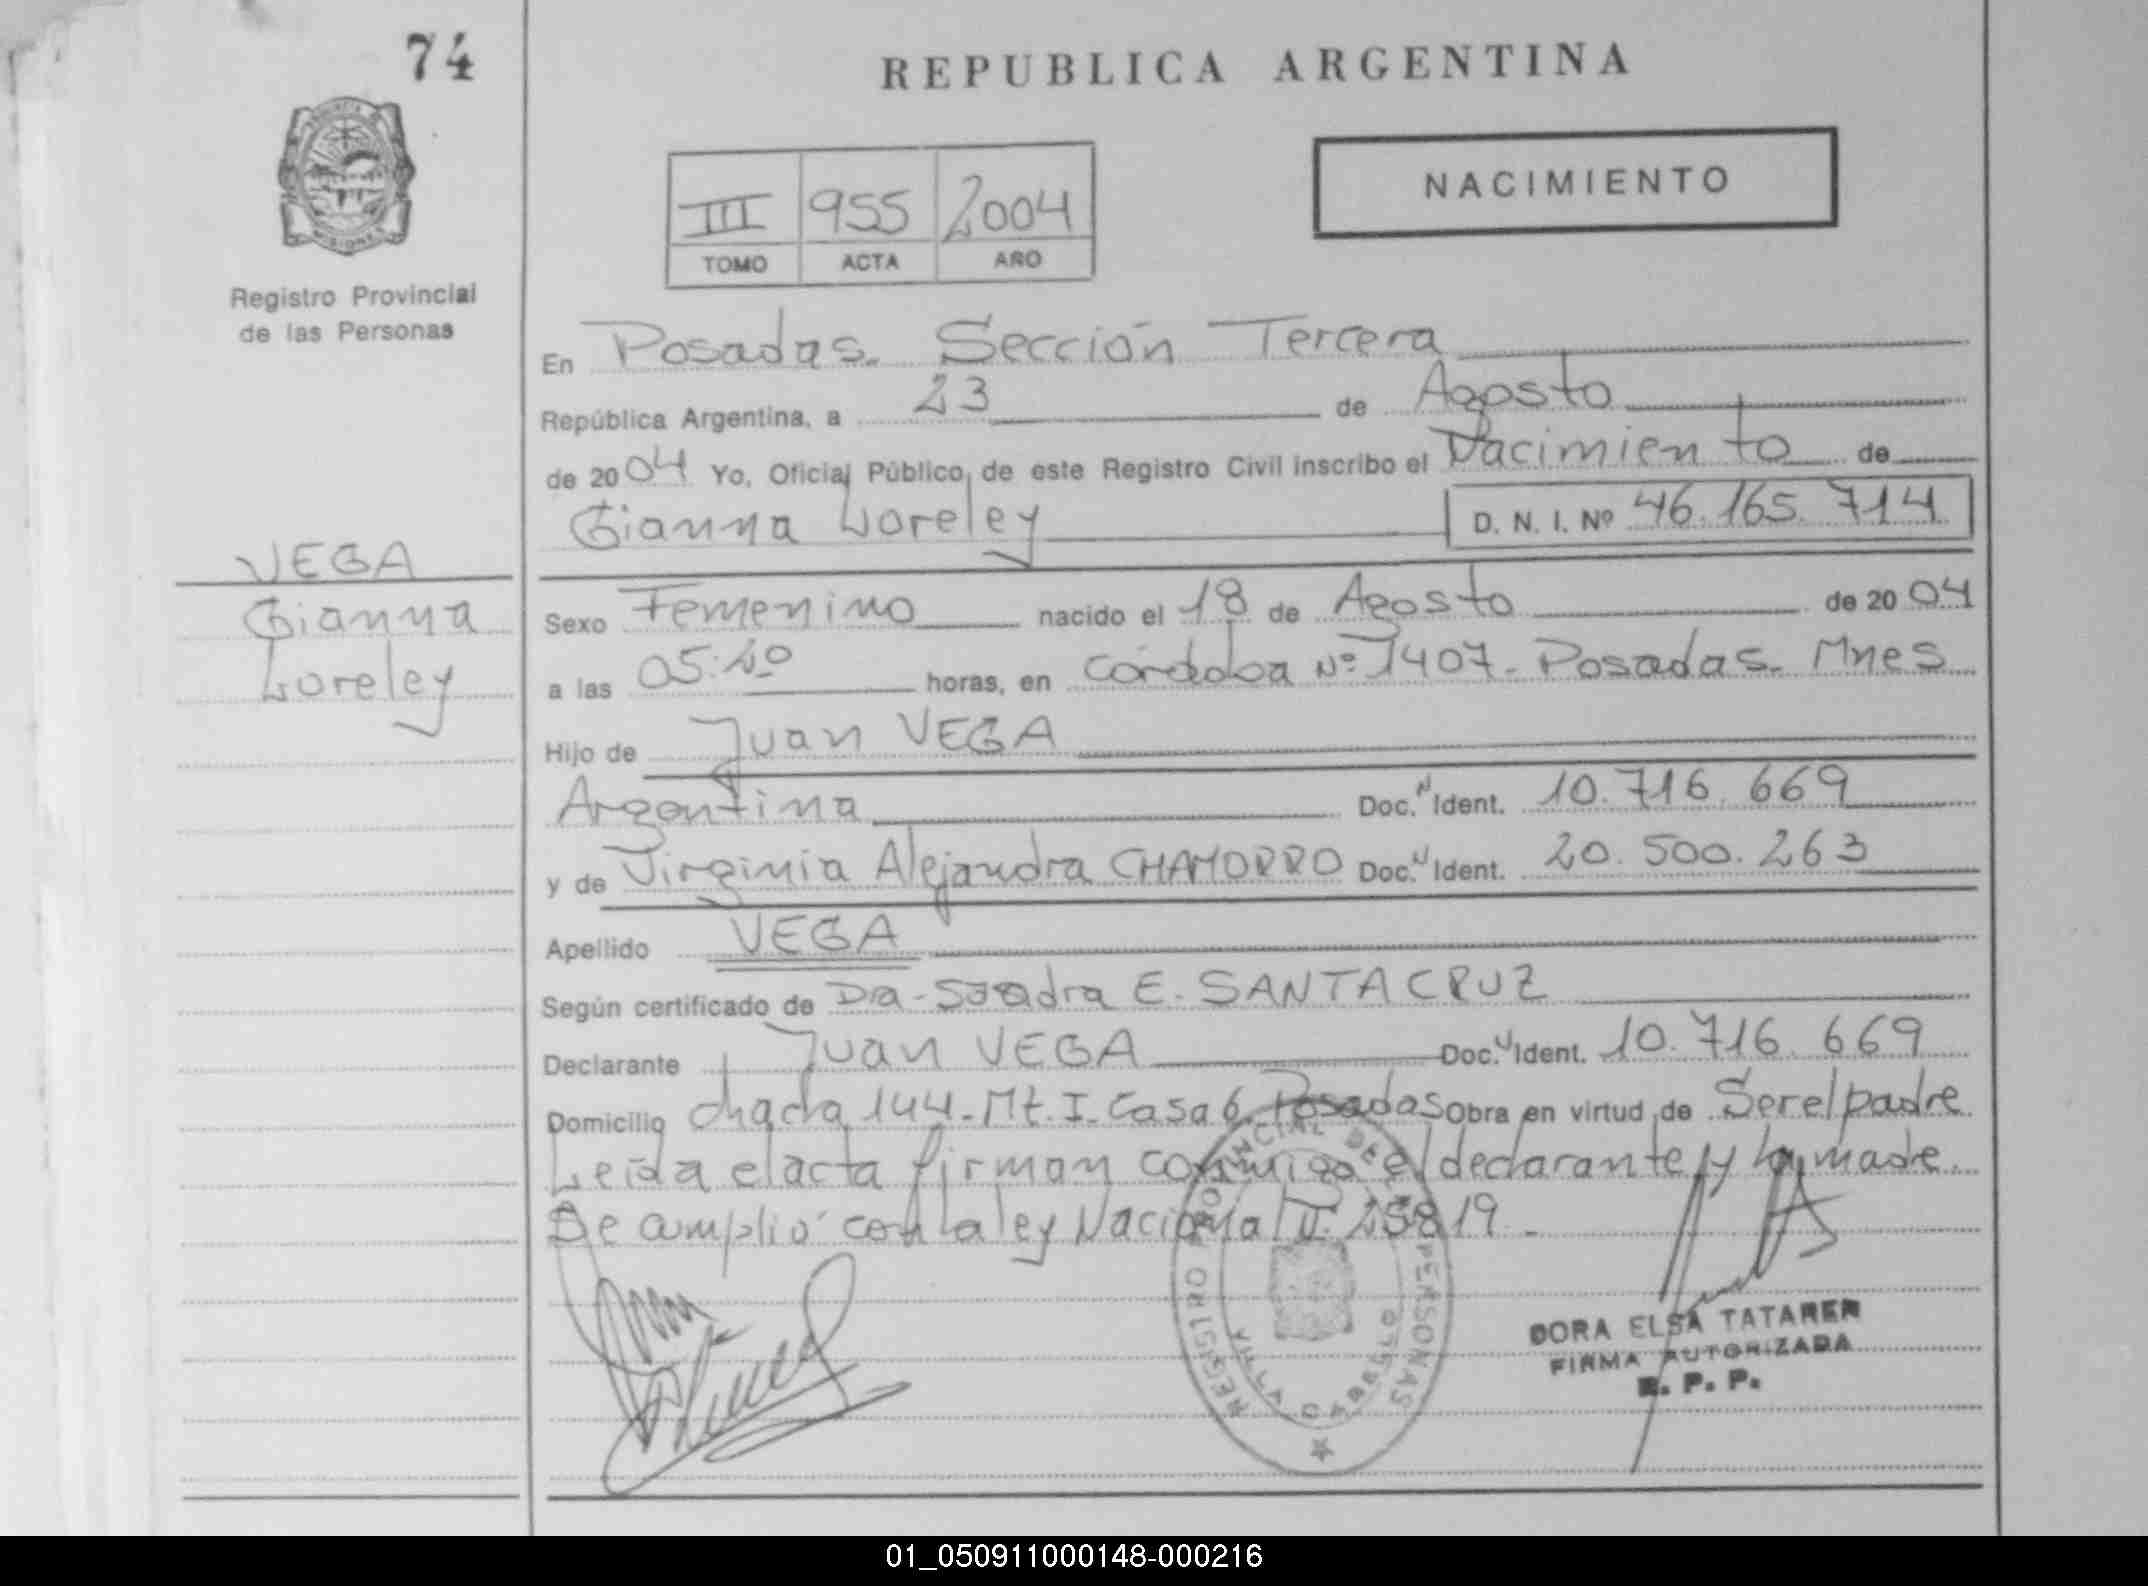 74
REPUBLICA ARGENTINA
NACIMIENTO
III 955 2004
TOMO ACTA AÑO
PROVINCIA
MISIONES
Registro Provincial
de las Personas
En Posadas. Sección Tercera
República Argentina, a 23 de Agosto
de 2004 Yo, Oficial Público, de este Registro Civil inscribo el Nacimiento de
Gianna Loreley D. N. I. Nº 46.165.714
VEGA
Gianna
Loreley
Sexo Femenino nacido el 18 de Agosto de 2004
a las 05:20 horas, en Córdoba Nº 1407 - Posadas. Mnes
Hijo de Juan VEGA
Argentina Doc. N Ident. 10.716.669
y de Virginia Alejandra CHAMORRO Doc. N Ident. 20.500.263
Apellido VEGA
Según certificado de Dra - Sandra E. SANTA CRUZ
Declarante Juan VEGA Doc. N Ident. 10.716.669
Domicilio chacra 144 - Mt. I - Casa 6 Posadas Obra en virtud de Ser el padre
Leída el acta firman conmigo el declarante y la madre
Se cumplió con la ley Nacional N. 25819 -
REGISTRO PROVINCIAL DE LAS PERSONAS
VILLA CABELLO
DORA ELSA TATAREN
FIRMA AUTORIZADA
R. P. P.
01_050911000148-000216